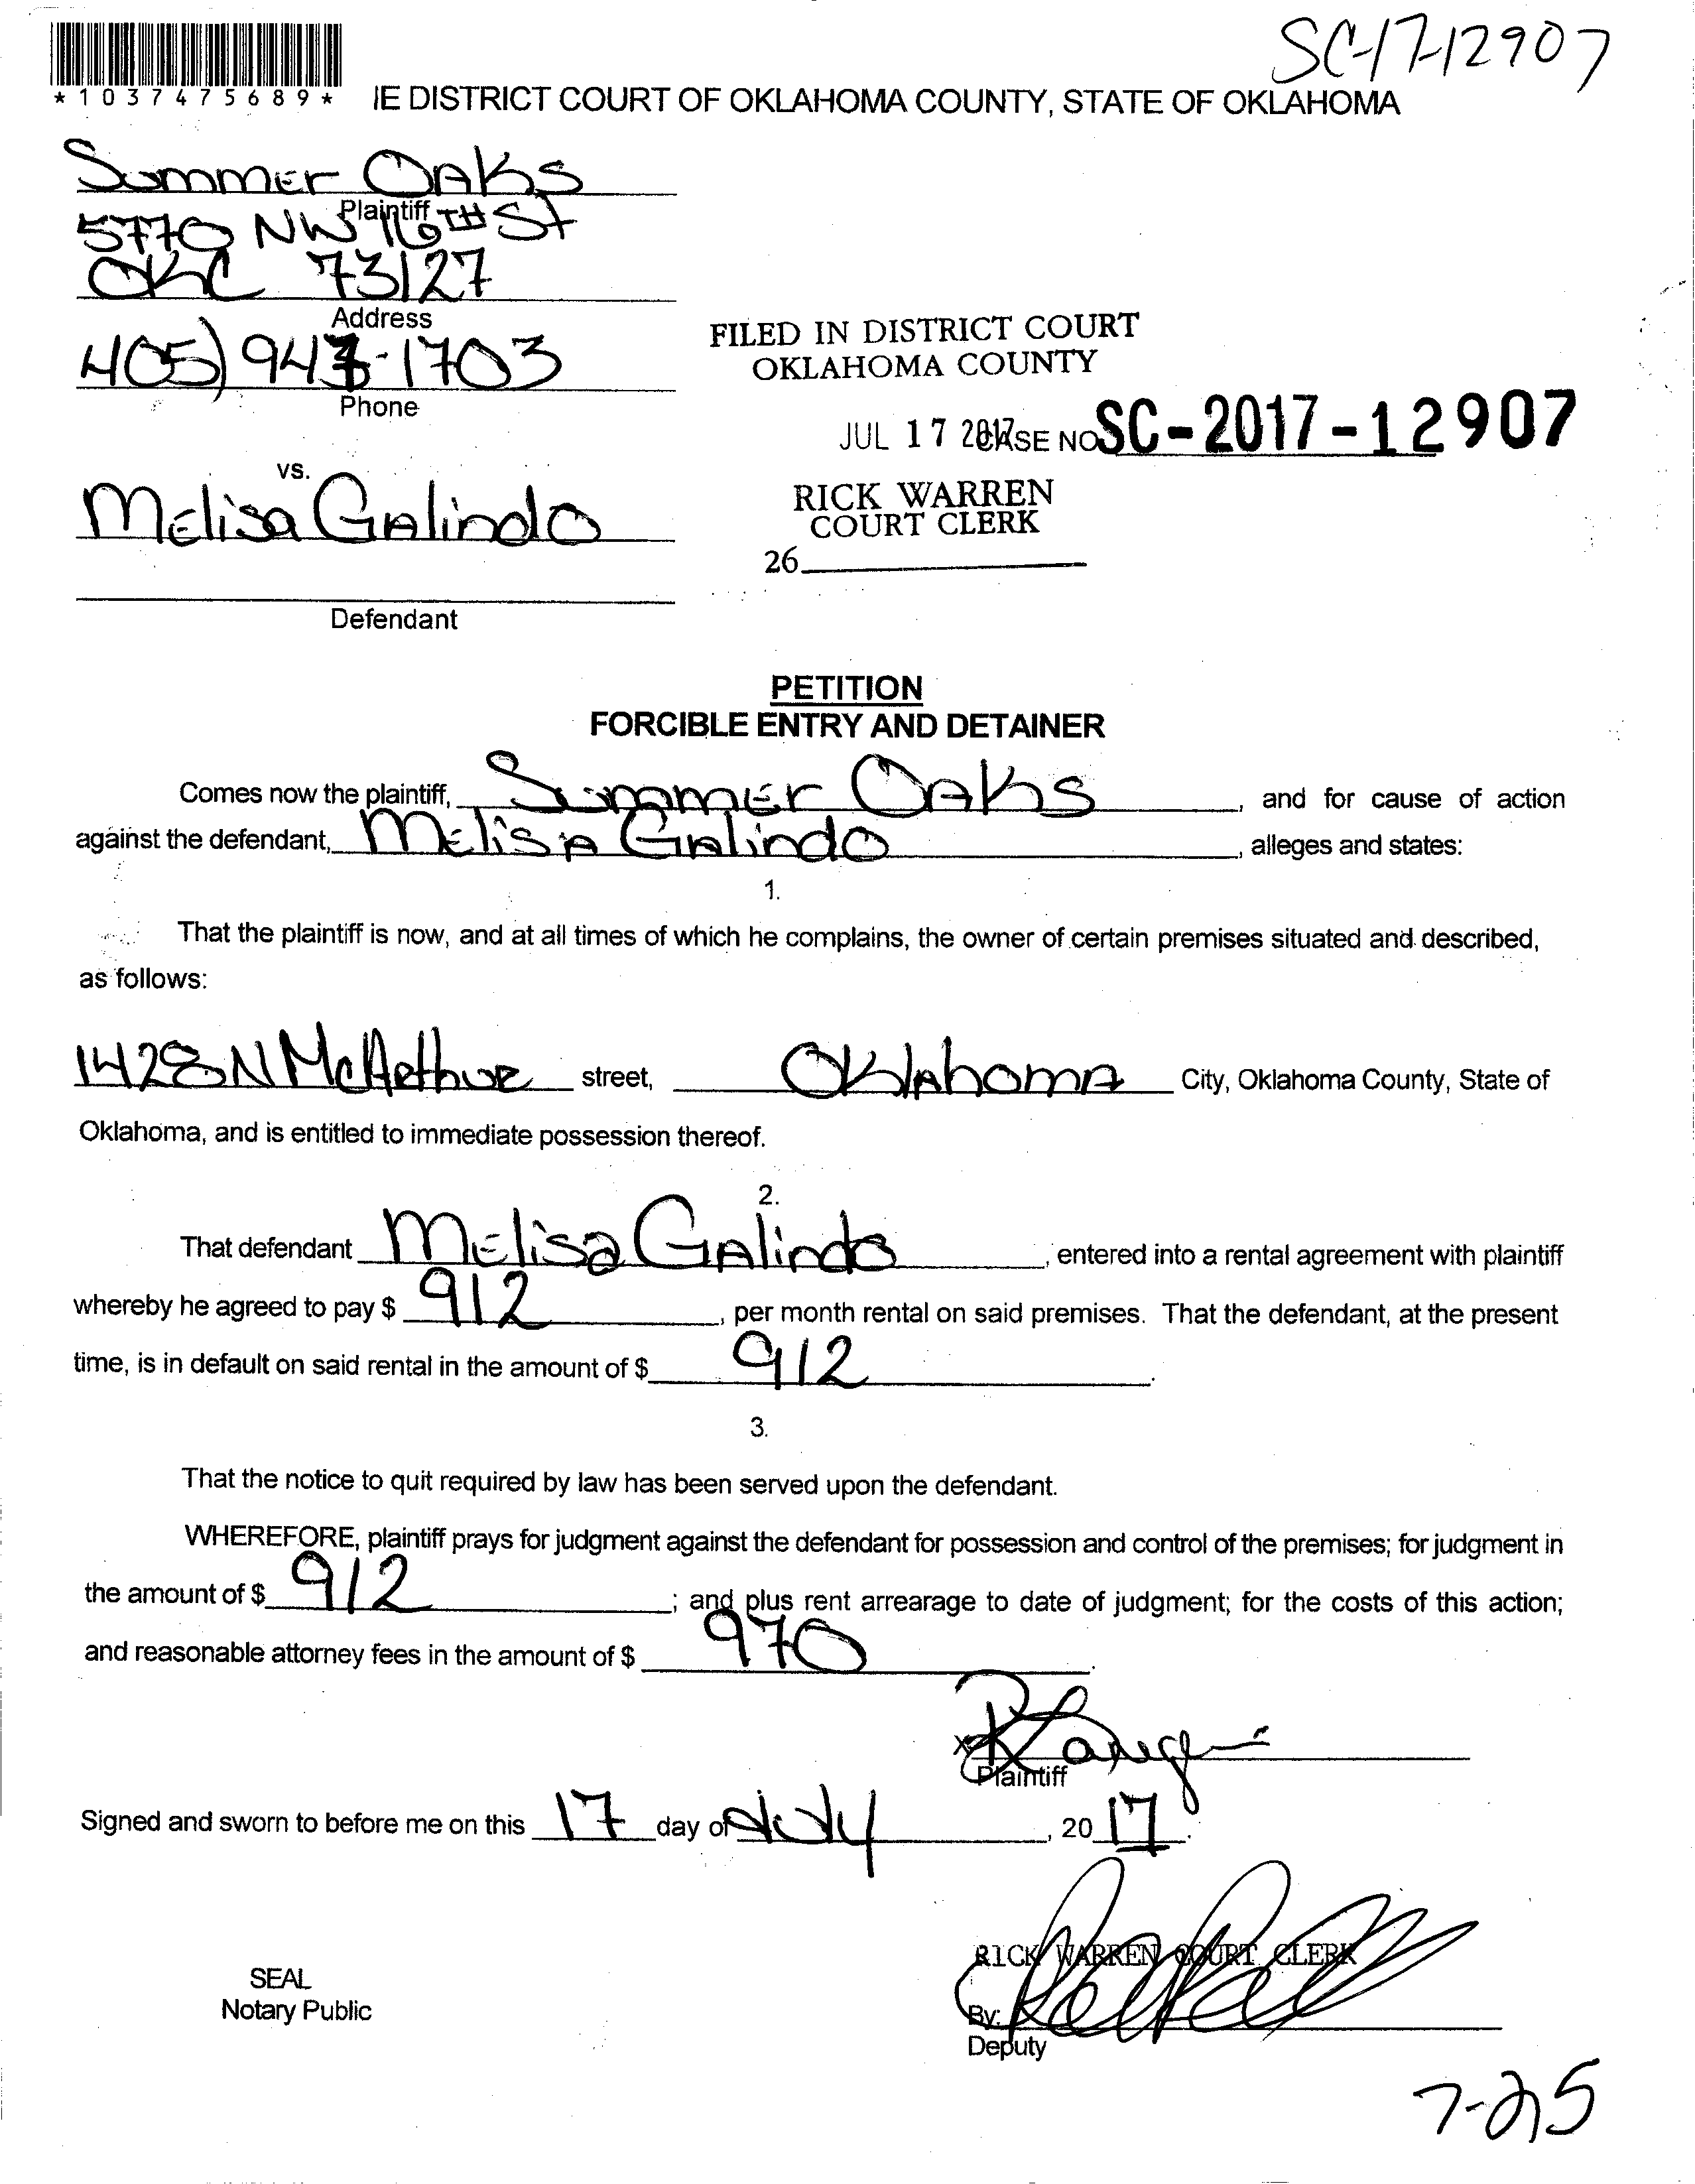 SC-17-12907
*1037475689*
IE DISTRICT COURT OF OKLAHOMA COUNTY, STATE OF OKLAHOMA
Summer Oaks
Plaintiff
5770 NW 16TH St
OKC 73127
Address
405) 943-1703
Phone
FILED IN DISTRICT COURT
OKLAHOMA COUNTY
JUL 17 2017
CASE NO. SC-2017-12907
RICK WARREN
COURT CLERK
26
vs.
Melisa Galindo
Defendant
PETITION
FORCIBLE ENTRY AND DETAINER
Comes now the plaintiff, Summer Oaks, and for cause of action
against the defendant, Melisa Galindo, alleges and states:
1.
That the plaintiff is now, and at all times of which he complains, the owner of certain premises situated and described,
as follows:
1428 N McArthur street, Oklahoma City, Oklahoma County, State of
Oklahoma, and is entitled to immediate possession thereof.
2.
That defendant Melisa Galindo, entered into a rental agreement with plaintiff
whereby he agreed to pay $ 912, per month rental on said premises. That the defendant, at the present
time, is in default on said rental in the amount of $ 912.
3.
That the notice to quit required by law has been served upon the defendant.
WHEREFORE, plaintiff prays for judgment against the defendant for possession and control of the premises; for judgment in
the amount of $ 912; and plus rent arrearage to date of judgment; for the costs of this action;
and reasonable attorney fees in the amount of $ 970.
Plaintiff
Signed and sworn to before me on this 17 day of July, 20 17.
RICK WARREN COURT CLERK
SEAL
Notary Public
By:
Deputy
7-25